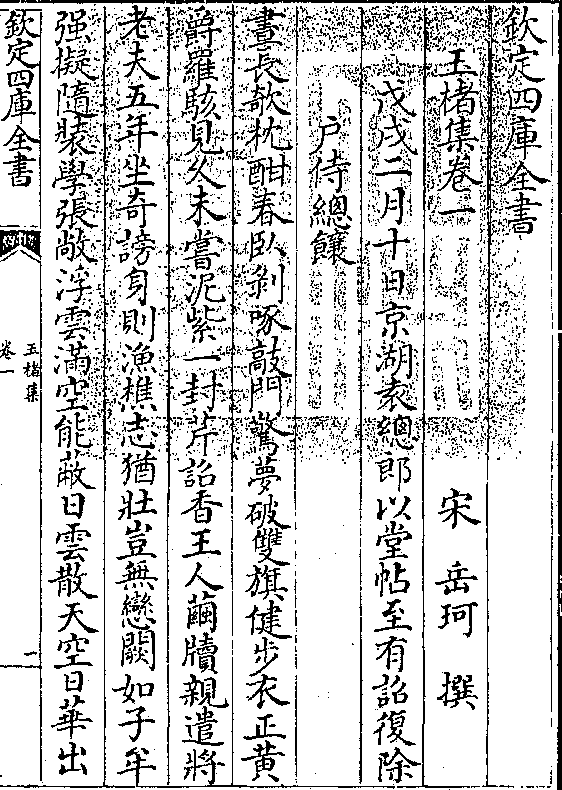 欽定四庫全書
玉楮集卷一
宋 岳珂 撰
戊戌二月十日京湖袁總郎以堂帖至有詔復除
户侍總饟
晝長欹枕酣春臥剥啄敲門驚夢破雙旗健步衣正黄
爵羅駭見久未嘗泥紫一封芹詔香王人繭牘親遣將
老夫五年坐奇謗身則漁樵志猶壯豈無戀闕如子牟
强擬隨裝學張敞浮雲滿空能蔽日雲散天空日華出
欽定四庫全書
玉楮集
卷一
一